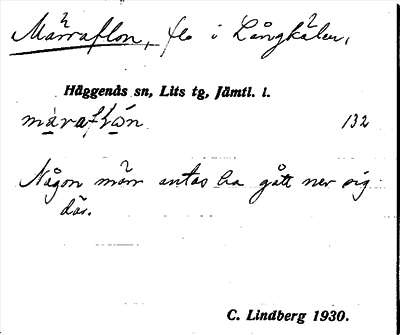 Märraflon, flo i Långkälen,
Häggenås sn, Lits tg, Jämtl. l.
märaflo̊n 132
Någon märr antas ha gått ner sig
där.
C. Lindberg 1930.